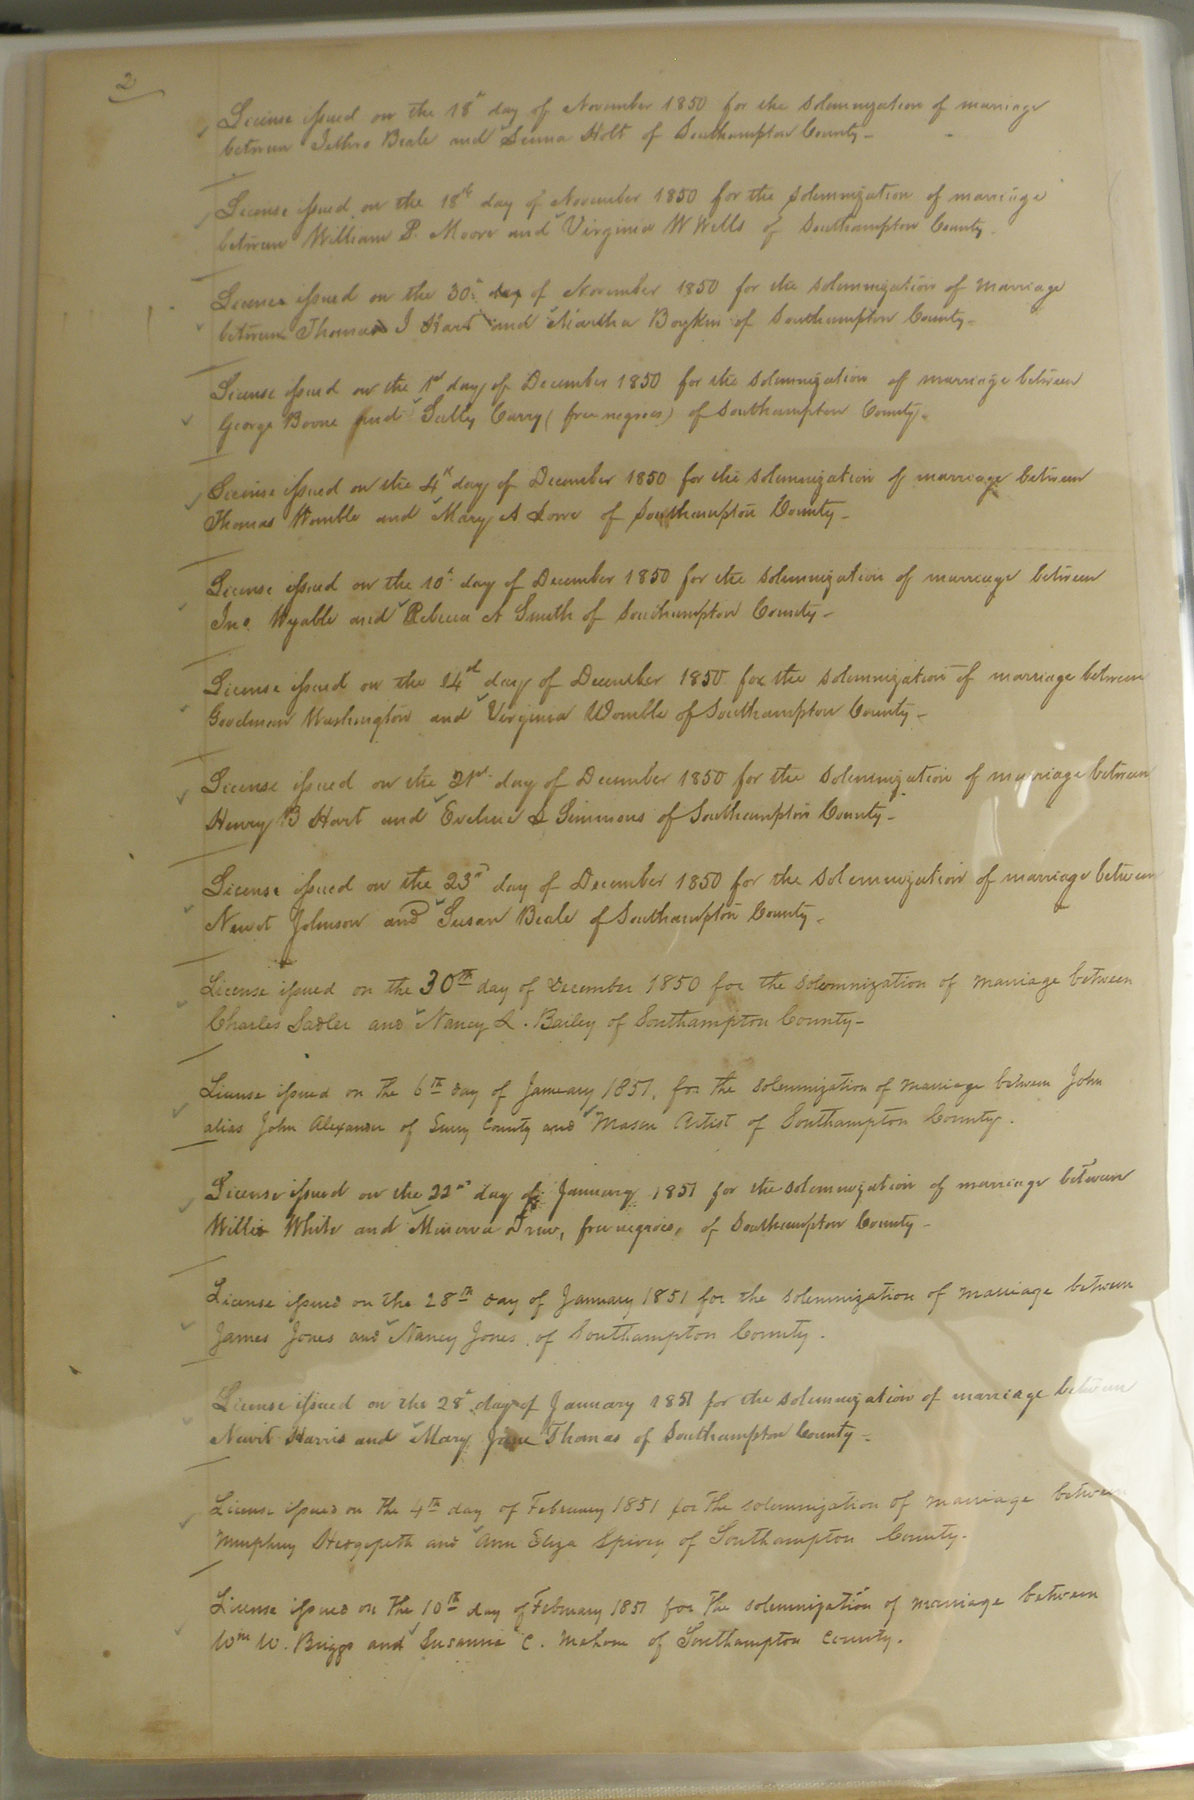 2
License issued on the 18th day of November 1850 for the solemnization of marriage
between Jethro Beale and Senna Holt of Southampton County-
License issued on the 18th day of November 1850 for the solemnization of marriage
between William P. Moore and Virginia W Wells of Southampton County.
License issued on the 30th day of November 1850 for the solemnization of marriage
between Thomas J and Martha Boykin of Southampton County-
License issued on the 1st day of December 1850 for the solemnization of marriage between
George Boone and Sally Curry (free negroes) of Southampton County-
License issued on the 4th day of December 1850 for the solemnization of marriage between
Thomas Womble and Mary A Lowe of Southampton County-
License issued on the 10th day of December 1850 for the solemnization of marriage between
Jno. Wyable and Rebecca A Smith of Southampton County-
License issued on the 14th day of December 1850 for the solemnization of marriage between
Goodman Washington and Virginia Womble of Southampton County-
License issued on the 21st day of December 1850 for the solemnization of marriage between
Henry B Hart and Eveline S Simmons of Southampton County-
License issued on the 23rd day of December 1850 for the solemnization of marriage between
Newit Johnson and Susan Beale of Southampton County-
License issued on the 30th day of December 1850 for the solemnization of marriage between
Charles Sadler and Nancy L. Bailey of Southampton County-
License issued on the 6th day of January 1851, for the solemnization of marriage between John
alias John Alexander of Surry County and Mason Artist of Southampton County.
License issued on the 22nd day of January 1851 for the solemnization of marriage between
Willis White and Minerva Drew, free negroes, of Southampton County-
License issued on the 28th day of January 1851 for the solemnization of marriage between
James Jones and Nancy Jones of Southampton County.
License issued on the 28th day of January 1851 for the solemnization of marriage between
Newit Harris and Mary Jane Thomas of Southampton County-
License issued on the 4th day of February 1851 for the solemnization of marriage between
Murphrey Hedgepeth and Ann Eliza Spivey of Southampton County.
License issued on the 10th day of February 1851 for the solemnization of marriage between
Wm W. Briggs and Susanna C. Mahone of Southampton County.